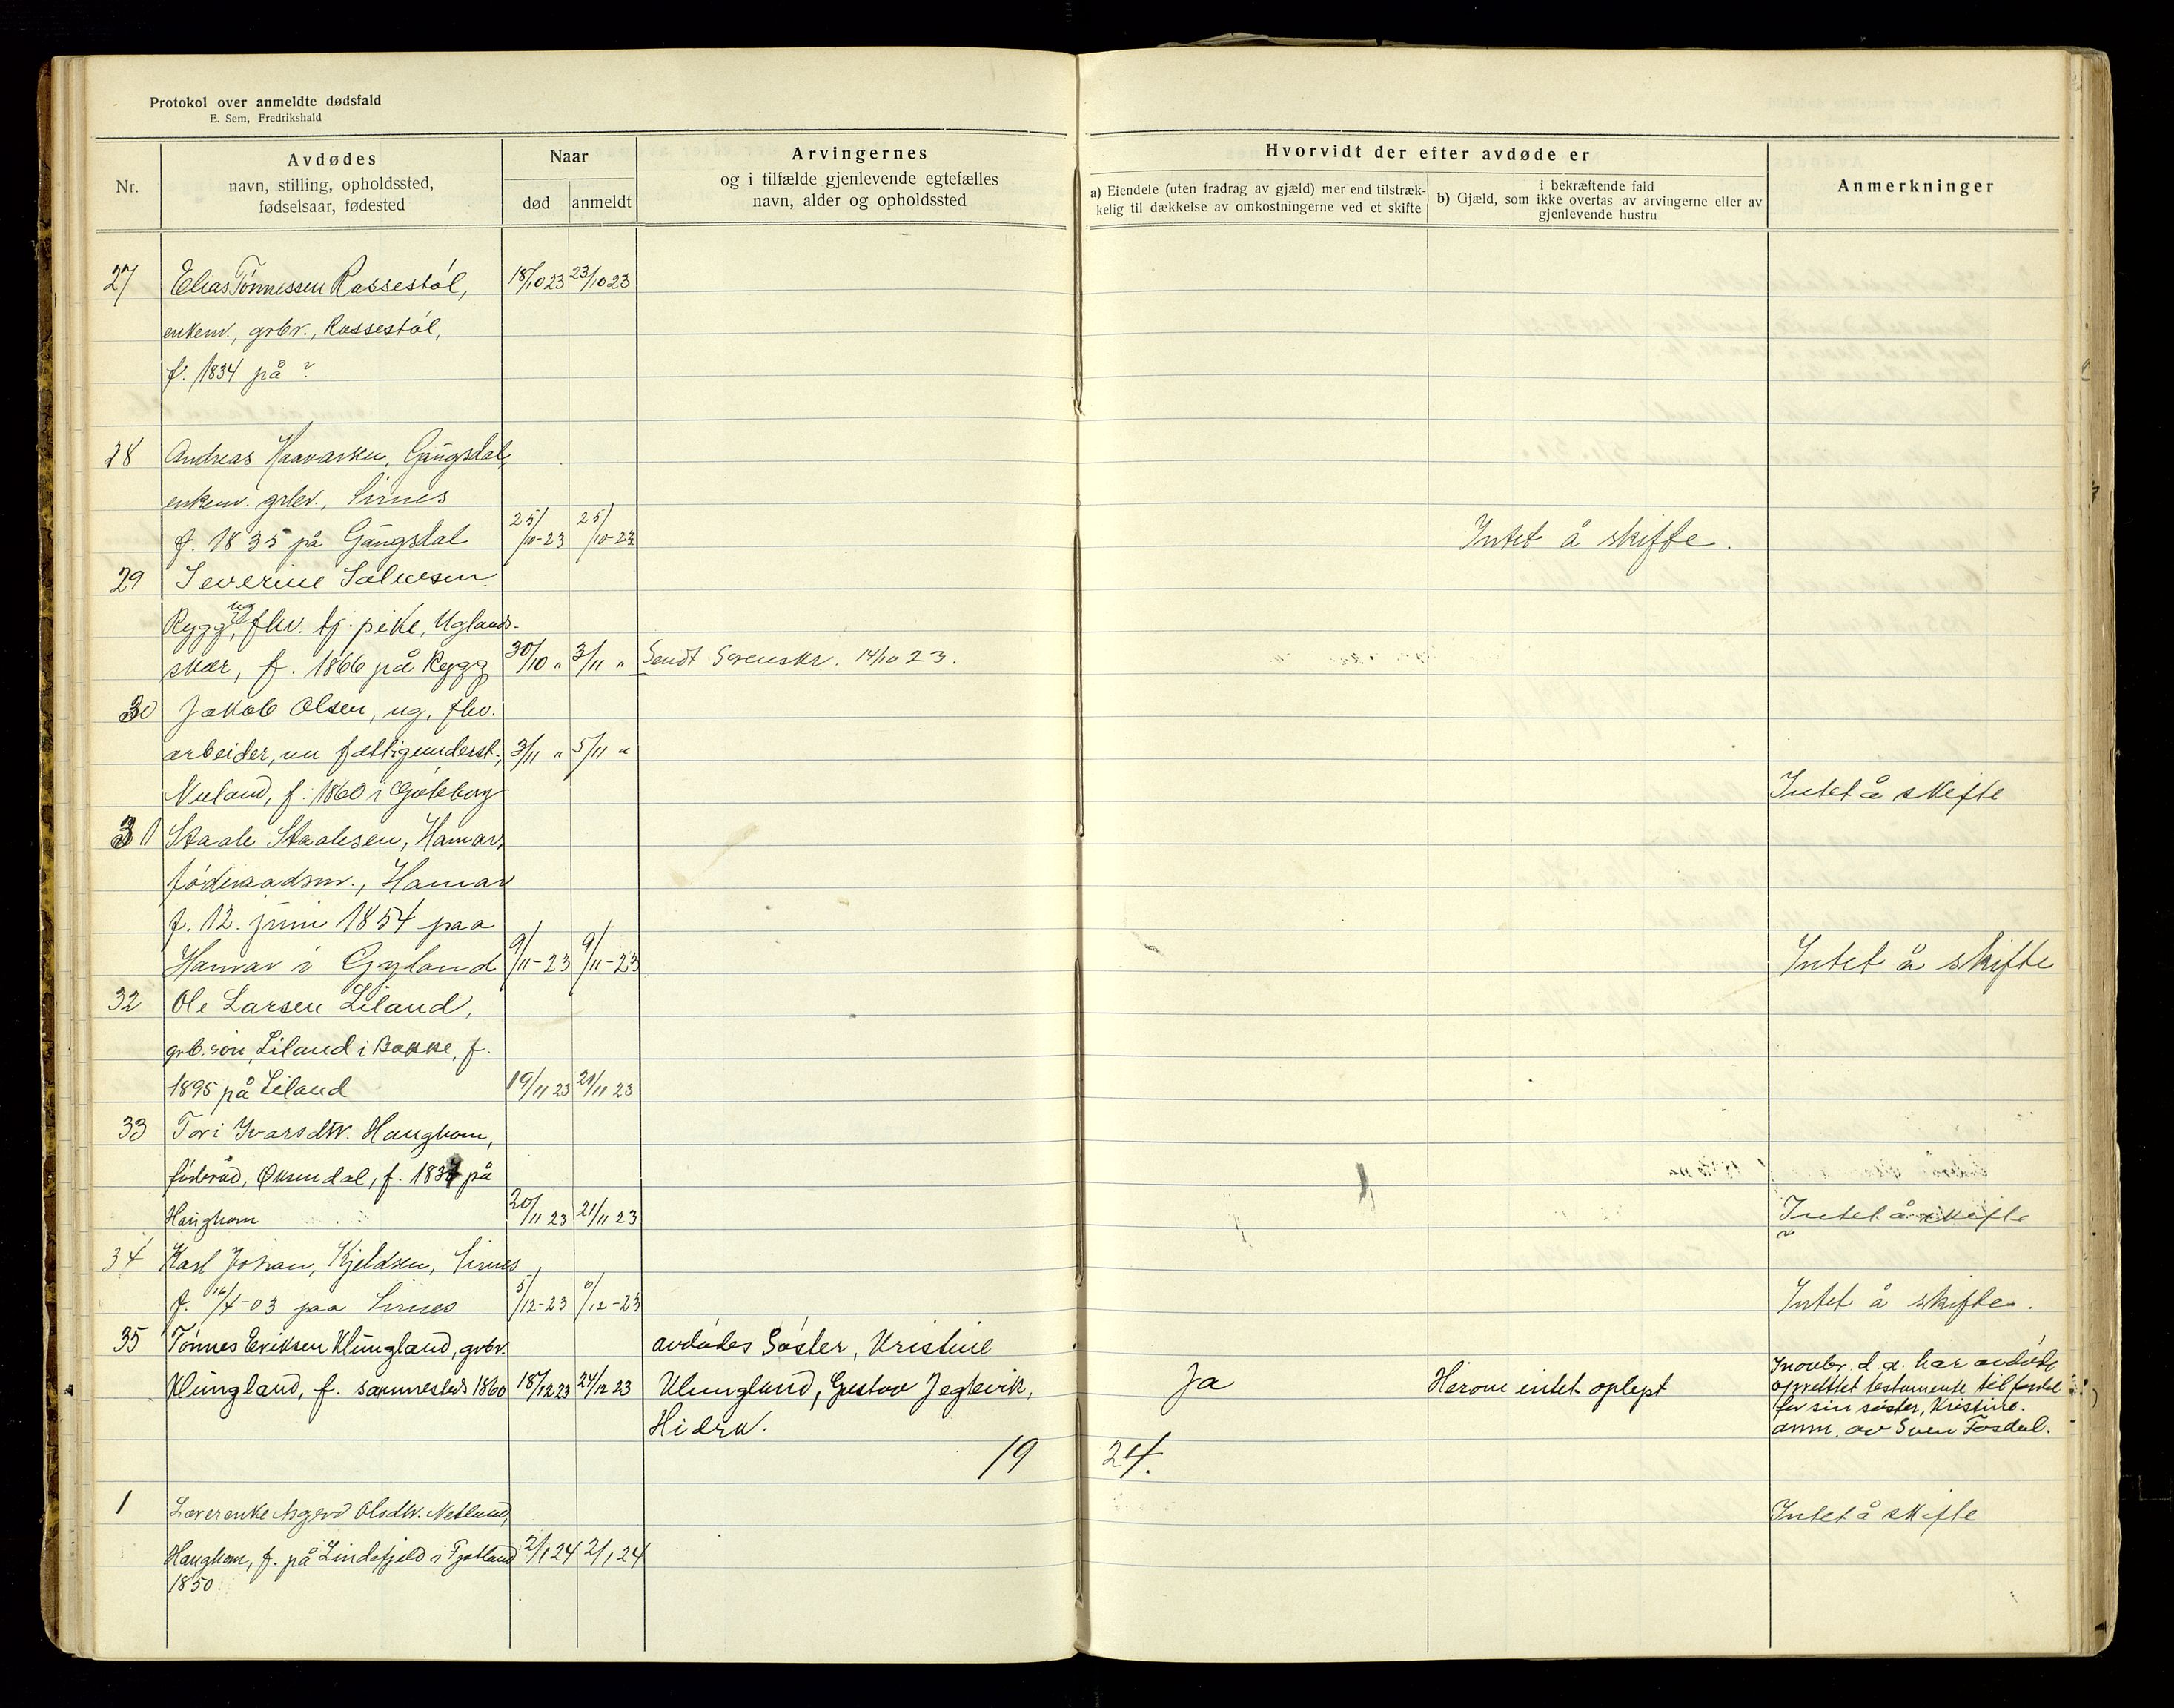 Protokol over anmeldte dødsfald
E. Sem, Fredrikshald
Nr.
Avdødes
navn, stilling, opholdssted,
fødselsaar, fødested
Naar
død
anmeldt
Arvingernes
og i tilfælde gjenlevende egtefælles
navn, alder og opholdssted
Hvorvidt der efter avdøde er
a) Eiendele (uten fradrag av gjæld) mer end tilstræk-
kelig til dækkelse av omkostningerne ved et skifte
i bekræftende fald
b) Gjæld, som ikke overtas av arvingerne eller av
gjenlevende hustru
Anmerkninger
27 Elias Tønnessen Rossestøl, 18/10 23 23/10 23
enkem., grbr., Rossestøl,
f. 1834 på ?
28 Andreas Haavarsen, Gangsdal,
enkem. grbr., Sirnes
f. 1835 på Gangsdal 25/10-23 25/10-23 Intet å skifte.
29 Severine Salvesen
Rygg, ug fhv. tj. pike, Uglands-
skær, f. 1866 på Rygg 30/10 " 3/11 " Sendt Sorenskr. 14/10 23.
30 Jakob Olsen, ug, fhv.
arbeider, nu fattigunderst.,
3/11 " 5/11 "
Nuland, f. 1860 i Gøteborg Intet å skifte
31 Staale Staalesen, Hamar,
føderaadsm., Hamar
f. 12. juni 1854 paa
Hamar i Gyland 9/11-23 9/11-23 Intet å skifte
32 Ole Larsen Liland,
grb. søn, Liland i Bakke, f.
1895 på Liland 19/11 23 21/11 23
33 Tori Ivarsdtr. Haughom,
føderåd, Øksendal, f. 1837 på
Haughom 20/11 23 21/11 23 Intet å skifte
34 Karl Johan Kjeldsen, Sirnes
f. 16/4-03 paa Sirnes 5/12-23 6/12-23 Intet å skifte.
35 Tønnes Eriksen Klungland, grbr.
Klungland, f. sammesteds 1860 18/12 23 24/12 23
avdødes Søster, Kristine
Klungland, Gustav Jegtevik,
Hidra.
Ja
Herom intet oplyst
I novbr. d. a. har avdøde
oprettet testamente til fordel
for sin søster, Kristine.
anm. av Sven Fosdal.
19 24.
1 Lærerenke Asgerd Olsdtr. Netland, Intet å skifte
Haughom, f. på Lindefjeld i Fjotland 2/1 24 2/1 24
1850.